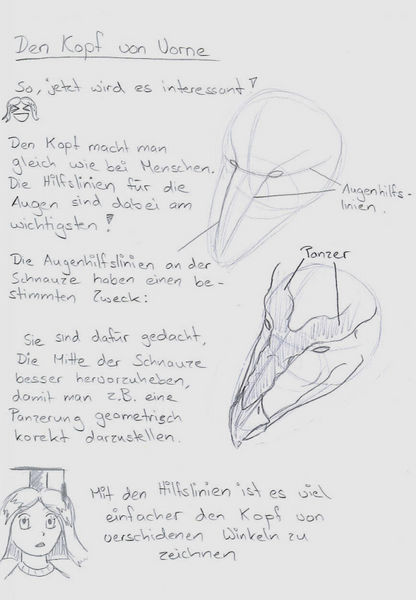 Den Kopf von Vorne
So, jetzt wird es interessant!
Den Kopf macht man
gleich wie bei Menschen.
Die Hilfslinien für die
Augen sind dabei am
wichtigsten!
Augenhilfs-
linien.
Die Augenhilfslinien an der
Schnauze haben einen be-
stimmten Zweck:
Panzer
Sie sind dafür gedacht,
Die Mitte der Schnauze
besser hervorzuheben,
damit man z.B. eine
Panzerung geometrisch
korekt darzustellen.
Mit den Hilfslinien ist es viel
einfacher den Kopf von
verschidenen Winkeln zu
zeichnen